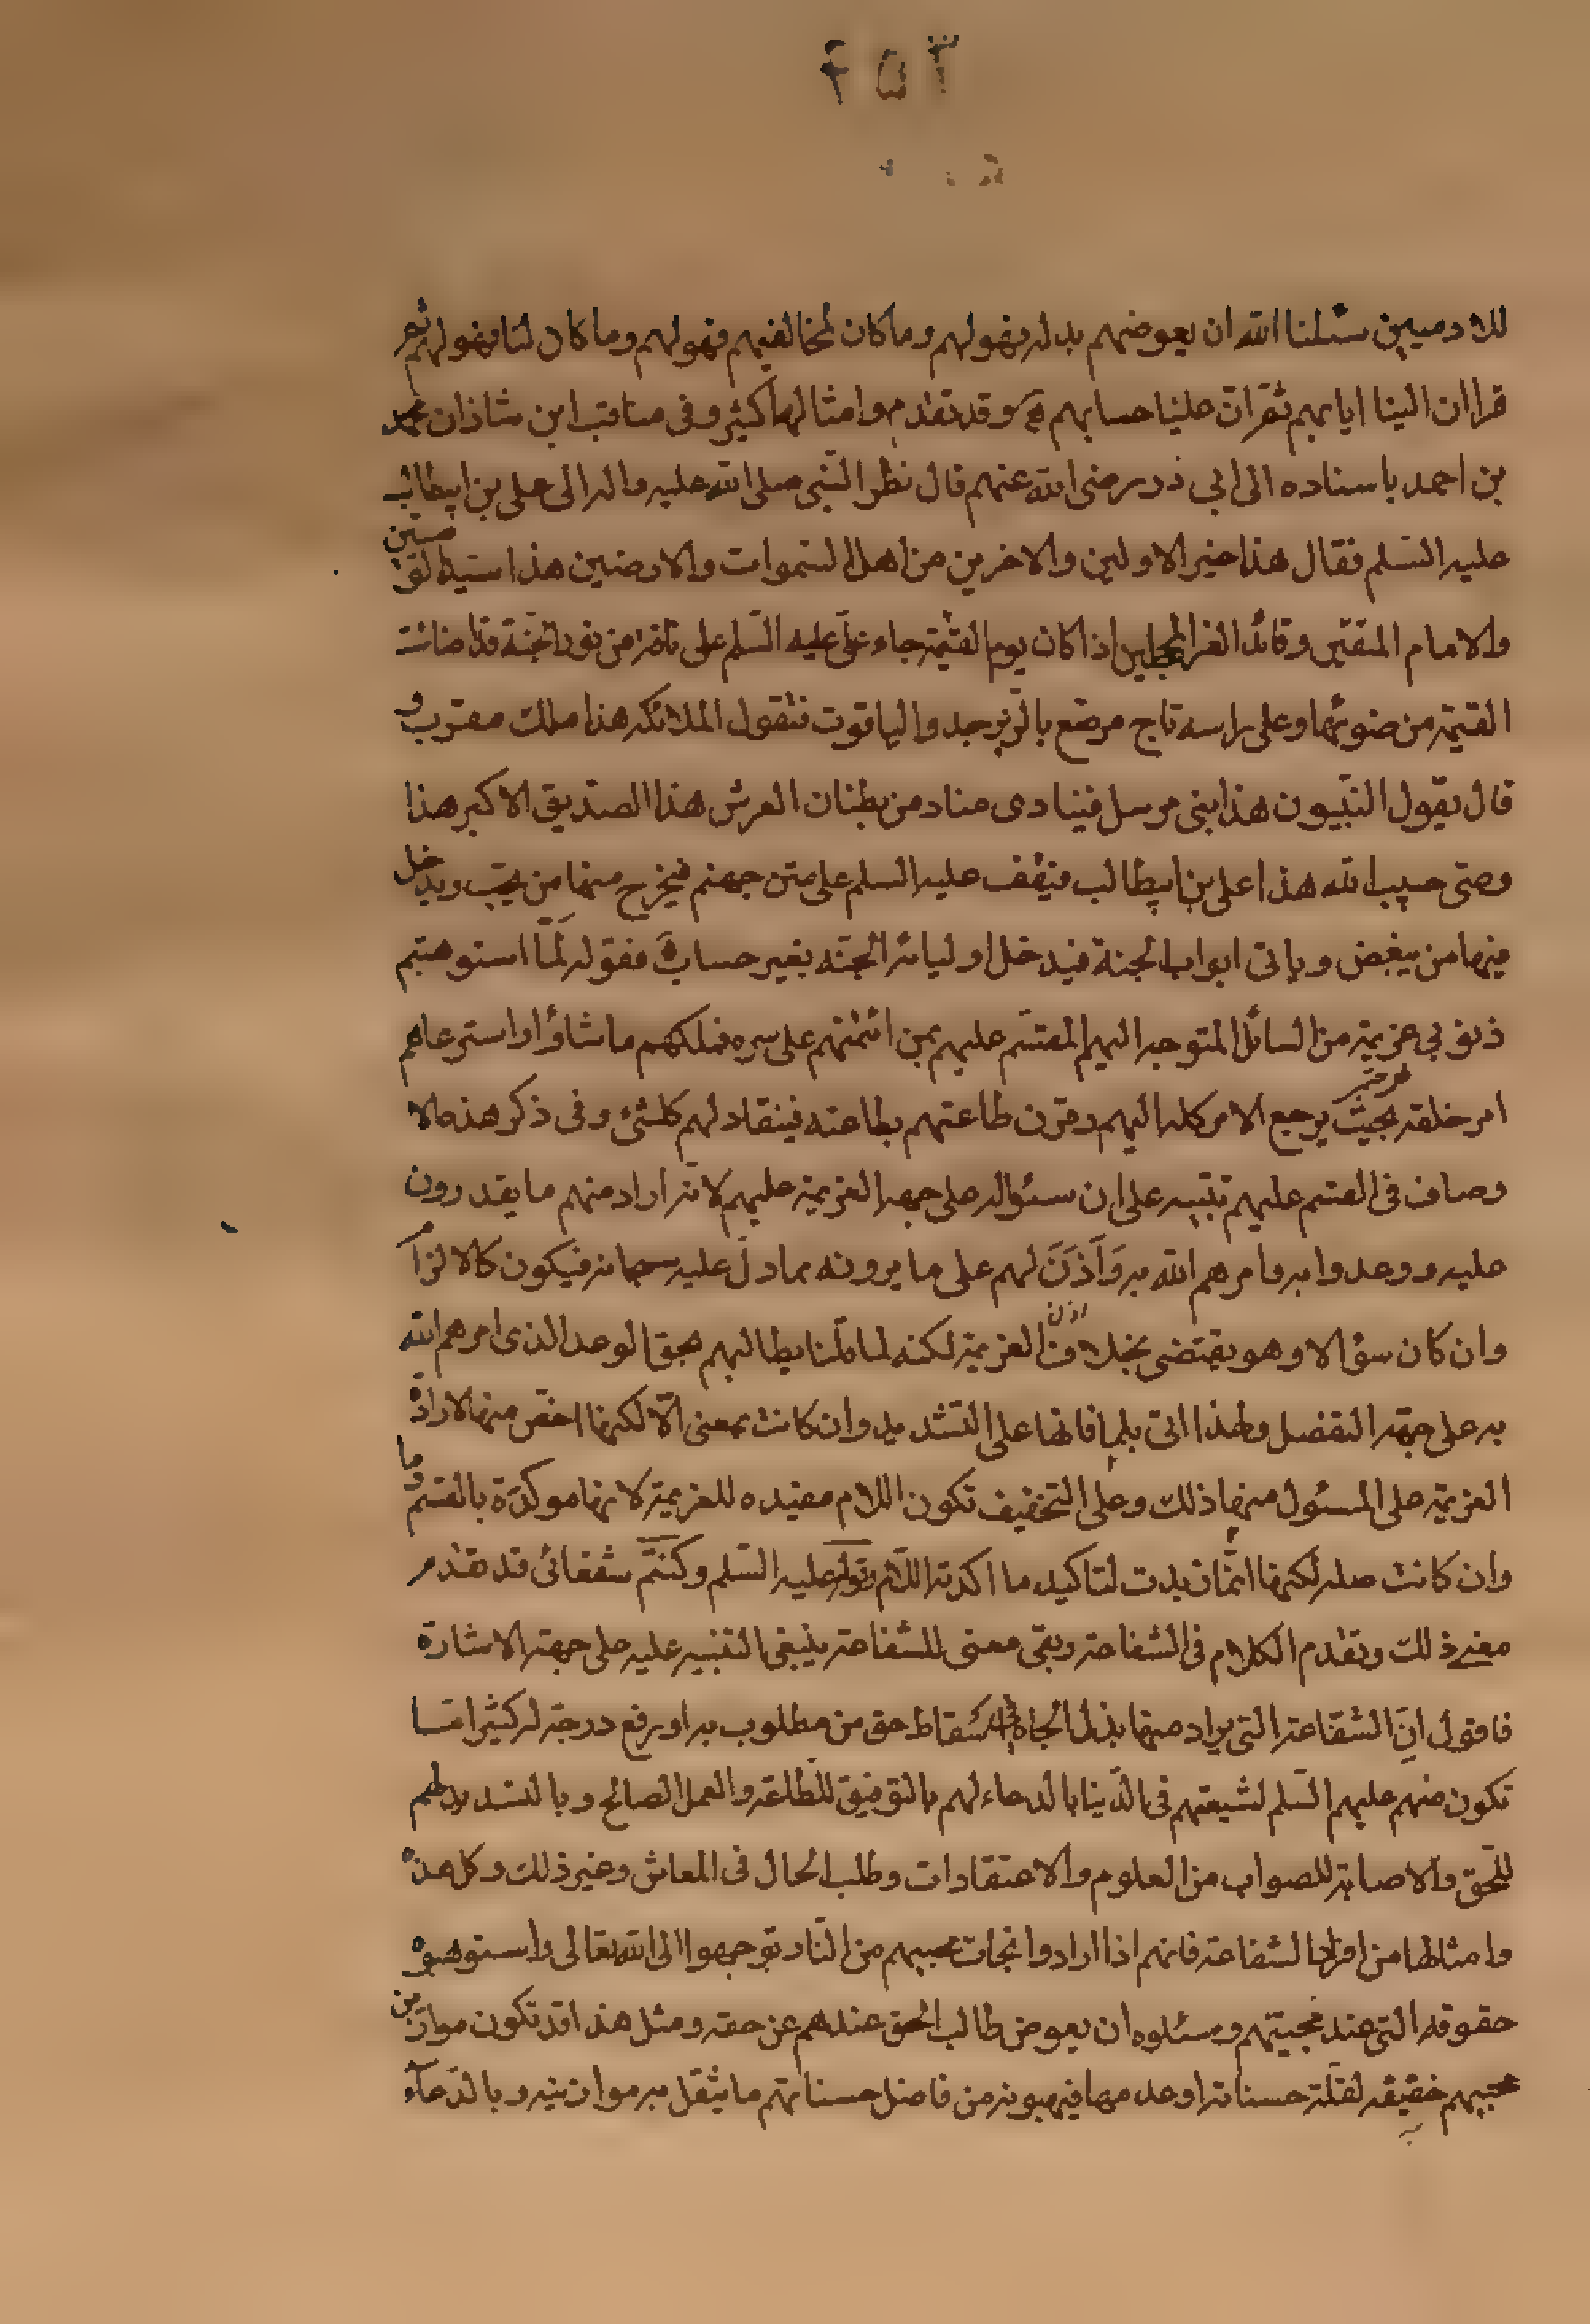 ٤٥٣
للادميين سئلنا الله ان يعوضهم بدله فهو لهم وما كان لمخالفيهم فهو لهم وما كان لنا فهو لهم ثم
قرا ان الينا ايابهم ثم ان علينا حسابهم وقد تقدم وامثالها كثير وفى مناقب ابن شاذان محمد
بن احمد باسناده الى ابي ذر رضى الله عنهم قال نظر النبى صلى الله عليه واله الى على بن ابيطالب
عليه السلم فقال هذا خير الاولين والاخرين من اهل السموات والارضين هذا سيد الوصيين
والامام المتقين وقائد الغر المحجلين اذا كان يوم القيمة جاء على عليه السلم على ناقة من نور الجنة قد اضائت
القيمة من ضوئها وعلى راسه تاج مرصع بالزبرجد والياقوت فتقول الملائكه هذا ملك مقرب و
قال يقول النبيون هذا نبى مرسل فينادى مناد من بطنان العرش هذا الصديق الاكبر هذا
وصى حبيب الله هذا على بن ابيطالب فيقف عليه السلم على متن جهنم فيخرج منها من يحب ويدخل
فيها من يبغض وياتى ابواب الجنة فيدخل اوليائه الجنه بغير حساب فقوله لما استوهبتم
ذنوبى عزيمة من السائل المتوجه اليهم المقسم عليهم بمن ائتمنهم على سره فملكهم ما شاؤا واسترعاهم
امر خلقه بحيث يرجع الامر كله اليهم وقرن طاعتهم بطاعته فينقاد لهم كلشئ وفى ذكر هذه الا
وصاف فى القسم عليهم تنبيه على ان سئواله على جهة العزيمة عليهم لانه اراد منهم ما يقدرون
عليه ووعدوا به وامرهم الله به وَاَذَنَ لهم على ما يرونه مما دل عليه سبحانه فيكون كالالزام
وان كان سؤالا وهو يقتضى بخلاف العزيمة لكنه لما قلنا يطالبهم بحق الوعد الذى امرهم الله
به على جهة التفضل ولهذا اتى بلما فانها على التشديد وان كانت بمعنى الّا لكنها اخص منها لارادة
العزيمة على المسئول منها ذلك وعلى التخفيف تكون اللام مفيده للعزيمة لانها موكدة بالقسم وما
وان كانت صله لكنها انما زيدت لتاكيد ما اكدته اللام قوله عليه السلم وكنتم شفعائى قد تقدم
معنى ذلك وتقدم الكلام فى الشفاعة وبقى معنى للشفاعة ينبغى التنبيه عليه على جهة الاشارة
فاقول انّ الشفاعة التى يراد منها بذل الجاه فى اسقاط حق من مطلوب به او رفع درجة له كثيرا ما
تكون منهم عليهم السلم لشيعتهم فى الدنيا بالدعاء لهم بالتوفيق للطاعة والعمل الصالح وبالتسديد لهم
للحق والاصابة للصواب من العلوم والاعتقادات وطلب الحال فى المعاش وغير ذلك وكل هذه
وامثالها من افراد الشفاعة فانهم اذا ارادوا نجات محبيهم من النار توجهوا الى الله تعالى واستوهبوه
حقوقه التى عند محبيهم وسئلوه ان يعوض طالب الحق عندهم عن حقه ومثل هذا قد تكون موازين
محبيهم خفيفه لقلة حسناته او عدمها فيهبونه من فاضل حسناتهم ما يثقل به موازينه وبالدعآء